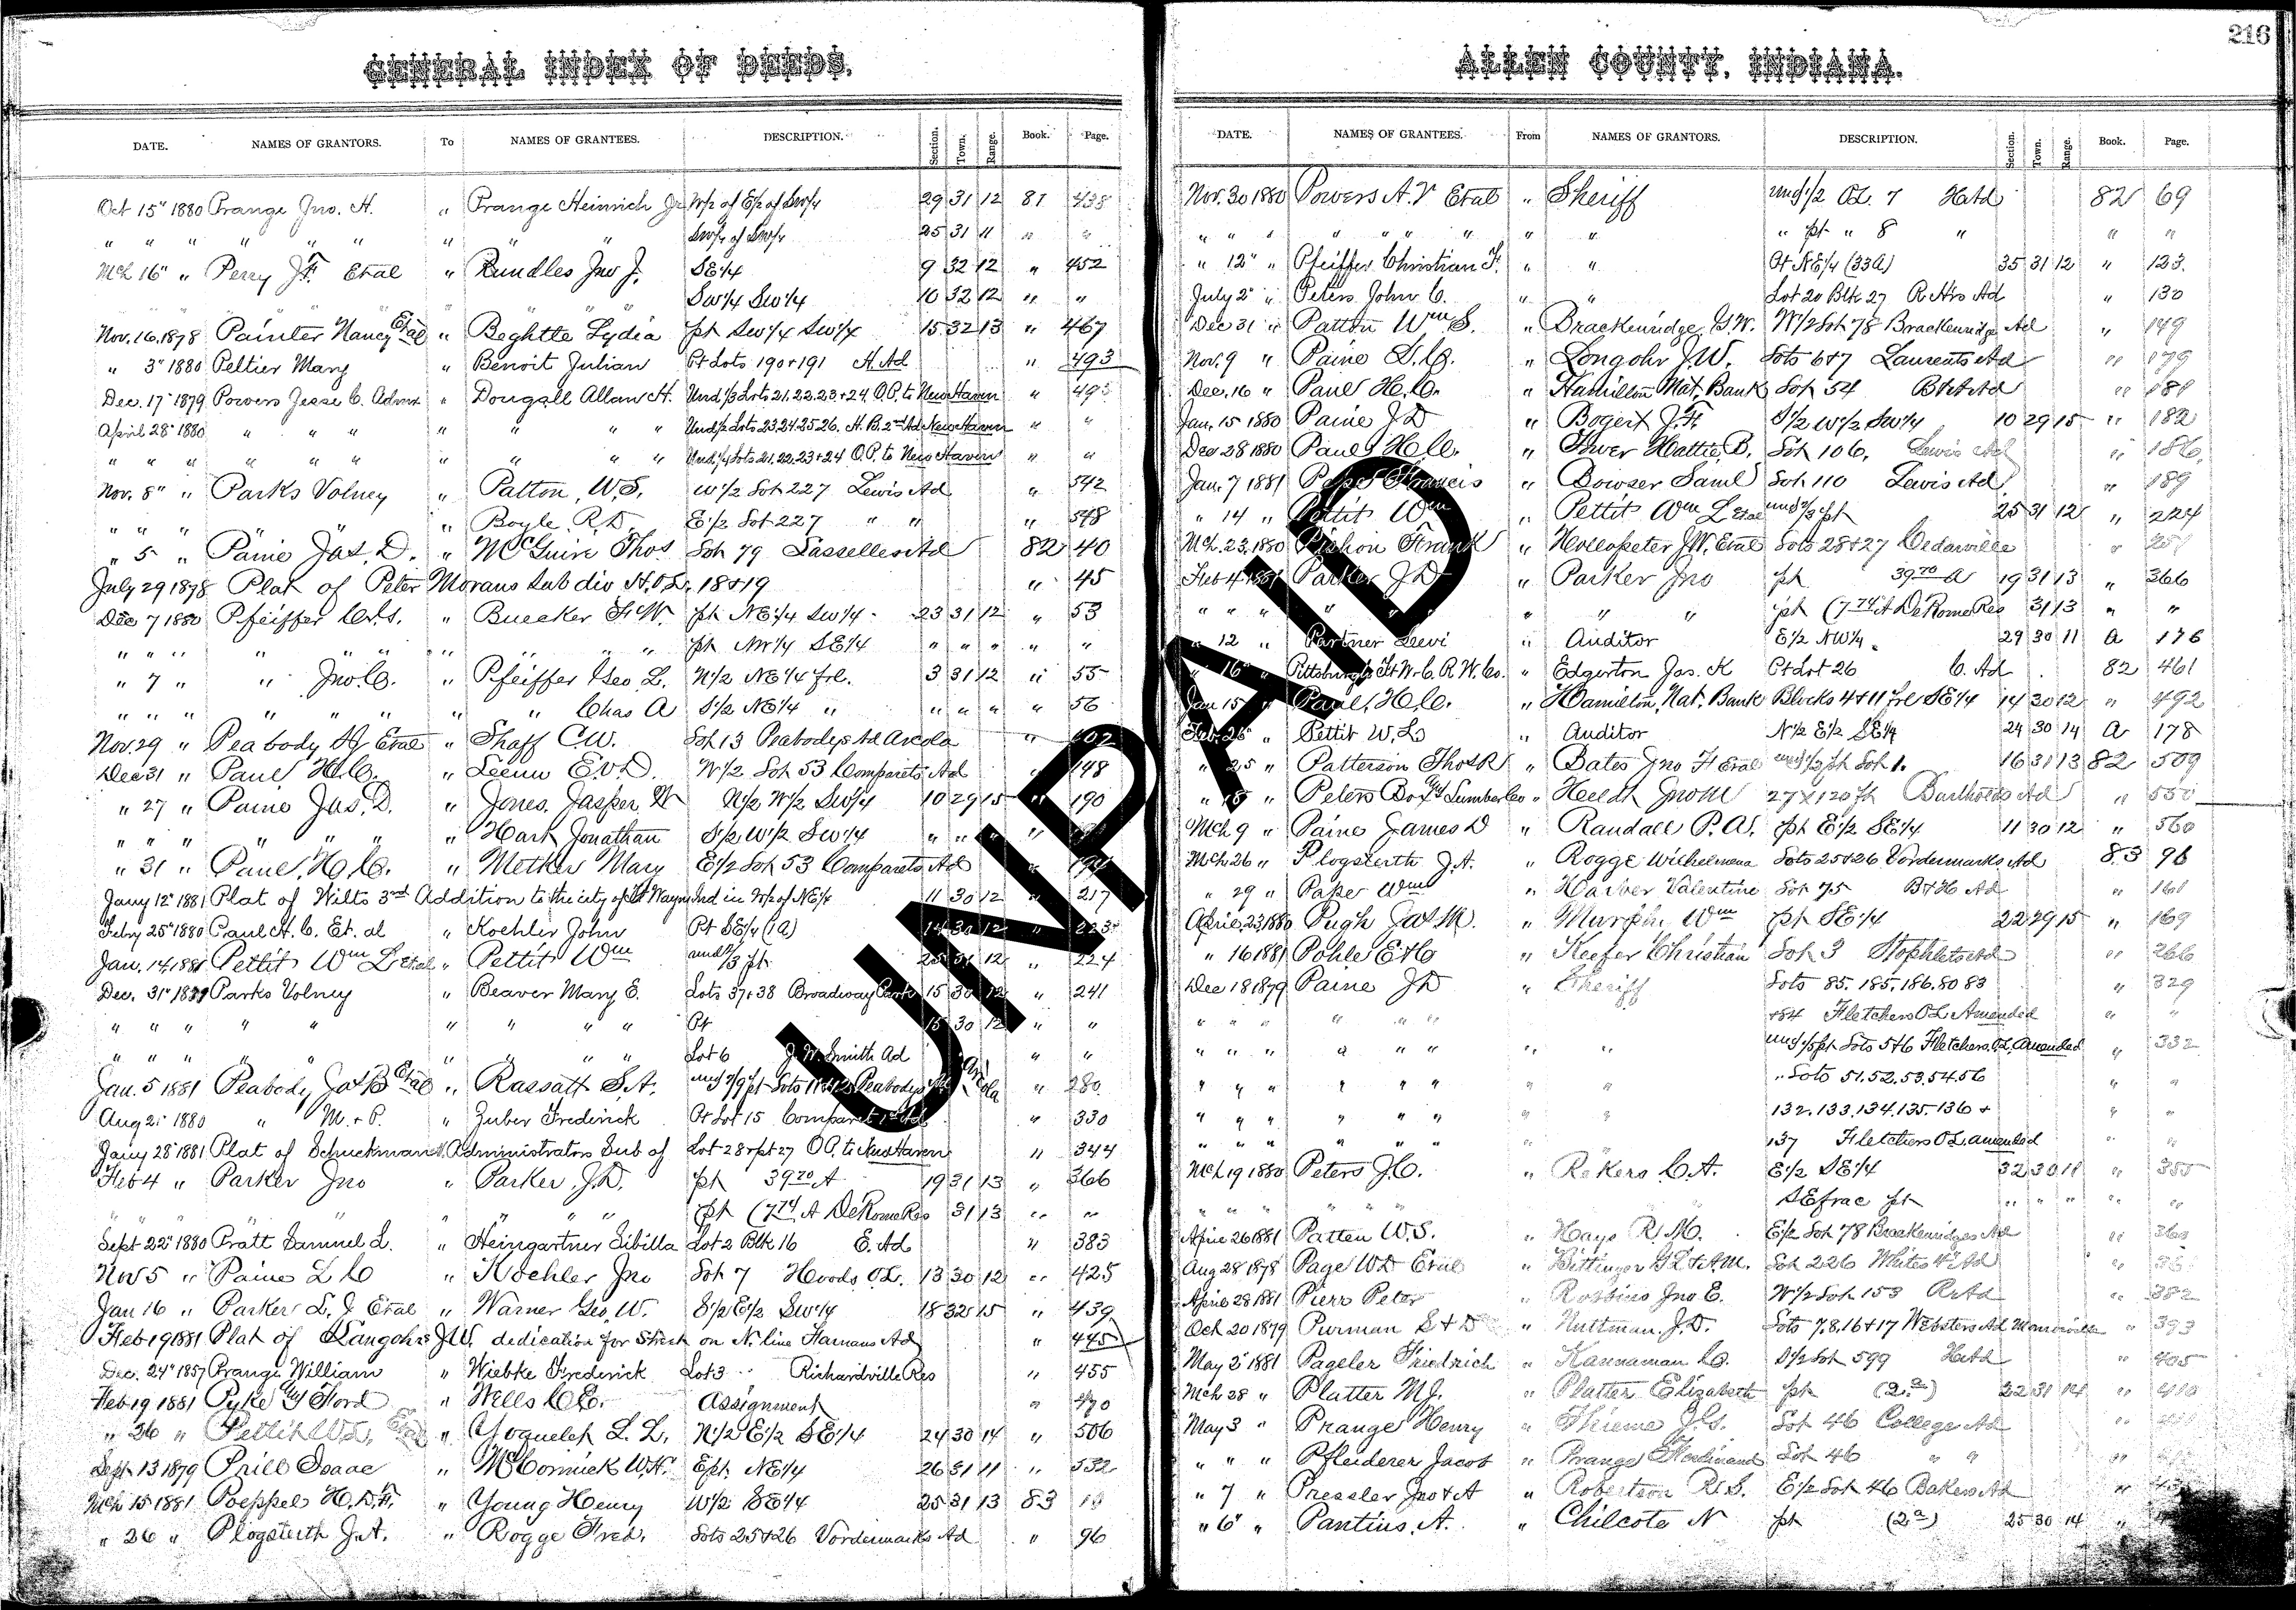 216
GENERAL INDEX OF DEEDS.
DATE. NAMES OF GRANTORS. To NAMES OF GRANTEES. DESCRIPTION. Section. Town. Range. Book. Page.
Oct 15" 1880 Prange Jno. H. " Prange Heinrich Jr W/2 of E/2 of SW/4 29 31 12 81 438
" " " " " " " " " SW/4 of SW/4 25 31 11 " "
Mch 16" " Perry J.F. Etal " Rundles Jno J. SE1/4 9 32 12 " 452
" " " " " " SW1/4 SW1/4 10 32 12 " "
Nov. 16, 1878 Painter Nancy Etal " Beghtte Lydia pt SW1/4 SW1/4 15 32 13 " 467
" 3" 1880 Peltier Mary " Benoit Julian Pt Lots 190+191 H. Ad " 493
Dec. 17" 1879 Powers Jesse C. Admx " Dougall Allan H. Und 1/3 Lots 21.22.23.+24. O.P. to New Haven " 495
April 28" 1880 " " " " " " " Und 1/2 Lots 23.24.25.26. H.B. 2nd Ad New Haven " "
" " " " " " " " " " Und. 1/4 Lots 21.22.23+24 O.P. to New Haven " "
Nov. 8" " Parks Volney " Patton, W.S. W1/2 Lot 227 Lewis Ad " 542
" " " " " " Boyle R.D. E1/2 Lot 227 " " " 548
" 5 " Paine Jas. D. " McGuire Thos Lot 79 Lasselles Ad 82 40
July 29 1878 Plat of Peter Morans Sub div H.O.L. 18+19 " 45
Dec 7 1880 Pfeiffer C.S. " Bueaker F.W. pt NE1/4 SW1/4 23 31 12 " 53
" " " " " " " " " pt NW1/4 SE1/4 " " " " "
" 7 " " Jno. C. " Pfeiffer Geo L. N/2 NE1/4 frl. 3 31 12 " 55
" " " " " " " " Chas A S1/2 NE1/4 " " " " " 56
Nov. 29 " Peabody Etal " Shaff C.W. Lot 13 Peabodys Ad Arcola " 102
Dec 31 " Paul H.C. " E.V.D. W1/2 Lot 53 Comparets Ad " 148
" 27 " Paine Jas. D. " Jones, Jasper W N/2 W/2 SW1/4 10 29 15 " 190
" " " " " " " Hark Jonathan S/2 W/2 SW1/4 " " " "
" 31 " Paul, H.C. " Metker Mary E1/2 Lot 53 Comparets Ad " 194
Jany 12" 1881 Plat of Wilts 3rd Addition to the city of Ft Wayne Ind in W/2 of NE1/4 11 30 12 " 217
Febry 25" 1880 Paul H.C. Et. al " Koehler John Pt SE1/4 (1a) 14 30 12 " 223
Jan. 14, 1881 Pettit Wm L Etal " Pettit Wm und 2/3 pt 25 31 12 " 224
Dec. 31" 1879 Parks Volney " Beaver Mary E. Lots 37+38 Broadway Park 15 30 12 " 241
" " " " " " " " " Pt 15 30 12 " "
" " " " " " " " " Lot 6 J.W. Smith Ad " "
Jan. 5 1881 Peabody Jas B Etal " Rassatt S.A. und 7/9 pt Lots 11+12 Peabodys Ad Arcola " 280
Aug 2" 1880 " M. + P. " Zuber Frederick Pt Lot 15 Comparet 1st Ad " 330
Jany 28" 1881 Plat of Schuckmans Administrators Sub of Lot 28+pt 27 O.P. to New Haven " 344
Feb 4 " Parker Jno " Parker J.D. pt 39.70 A 19 31 13 " 366
" " " " " " " " pt (7.74 A DeRome Res 31 13 " "
Sept 22" 1880 Pratt Samuel L. " Heingartner Sibilla Lot 2 Blk 16 E. Ad " 383
Nov 5 " Paine L C " Koehler Jno Lot 7 Hoods O.L. 13 30 12 " 425
Jan 16 " Parker L.J. Etal " Warner Geo. W. S1/2 E1/2 SW1/4 18 32 15 " 439
Feb 19 1881 Plat of Langohrs J.W. dedication for Street on N. line Hamans Ad " 445
Dec. 24" 1857 Prange William " Wiebke Frederick Lot 3 Richardville Res " 455
Feb 19 1881 Pyke Ford " Wells C.E. Assignment " 490
" 26 " Pettit W.L. Etal " Yoquelet L.L. N1/2 E1/2 SE1/4 24 30 14 " 506
Sept. 13 1879 Prill Isaac " McCormick W.H. Ept. NE1/4 26 31 11 " 532
Mch 15 1881 Poeppel H.D.F. " Young Henry W1/2 SE1/4 25 31 13 83
" 26 " Plogsterth J.A. " Rogge Fred. Lots 25+26 Vordermarks Ad " 96
ALLEN COUNTY, INDIANA.
DATE. NAMES OF GRANTEES. From NAMES OF GRANTORS. DESCRIPTION. Section. Town. Range. Book. Page.
Nov. 30 1880 Powers A.V Etal " Sheriff und 1/2 O.L. 7 H Ad 82 69
" " " " " " " " " " pt " 8 " " "
" 12" " Pfeiffer Christian F. " " Pt NE1/4 (33a) 35 31 12 " 123.
July 2" " Peters John C. " " Lot 20 Blk 27 Ad " 130
Dec 31 " Patton Wm S. " Brackenridge G.W. W1/2 Lot 78 Brackenridge Ad " 149
Nov. 9 " Paine L.C. " Longohr J.W. Lots 6+7 Laurents Ad " 179
Dec. 16 " Paul H.C. " Hamilton Nat. Bank Lot 54 Ad " 181
Jan. 15 1880 Paine J D " Bogert J.F. S1/2 W1/2 SW1/4 10 29 15 " 182
Dec 28 1880 Paul H.C. " Hattie B. Lot 106. Lewis Ad " 186.
Jan. 7 1881 Pape Francis " Bowser Saml Lot 110 Lewis Ad " 189
" 14 " Pettit Wm " Pettit Wm L Etal und 2/3 pt 25 31 12 " 224
Mch. 23, 1880 Pichon Frank " Hollopeter J.W. Etal Lots 28+27 Cedarville "
Feb 4 1881 Parker J D " Parker Jno pt 39.70 a 19 31 13 " 366
" " " " " " " " pt (7.74 A DeRome Res 31 13 " "
" 12 " Partner Levi " Auditor E1/2 NW1/4 29 30 11 A 176
" 16" " Pittsburgh Ft W. & C. R.W. Co. " Edgerton Jos. K Pt Lot 26 C. Ad 82 461
Jan 15 " Paul, H.C. " Hamilton, Nat. Bank Blocks 4+11 frl SE1/4 14 30 12 " 492
Feb. 26" " Pettit W.L " Auditor N1/2 E1/2 SE1/4 24 30 14 A 178
" 25 " Patterson Thos R " Bates Jno F Etal und 1/2 pt Lot 1. 16 31 13 82 509
" 18 " Peters Box & Lumber Co " Jno M 27x120 ft Ad " 550
Mch 9 " Paine James D " Randall P.A. pt E1/2 SE1/4 11 30 12 " 560
Mch 26 " Plogsterth J.A. " Rogge Wilhelmena Lots 25+26 Vordermarks Ad 83 96
" 29 " Pape Wm " Valentine Lot 75 B+H Ad " 161
April 23, 1880 Pugh Jas M. " Wm pt SE1/4 22 29 15 " 169
" 16 1881 Pohle E+C " Keefer Christian Lot 3 Stophlets Ad " 266
Dec 18 1879 Paine J D " Sheriff Lots 85. 185. 186. 80 83 " 329
" " " " " " +84 Fletchers O L Amended " "
" " " " " " " " und 1/5 pt Lots 5+6 Fletchers O.L. Amended " 332
" " " " " " " " Lots 51.52.53.54.56 " "
" " " " " " " " 132.133.134.135.136 + " "
" " " " " " " 137 Fletchers O L amended " "
Mch 19 1880 Peters J.C. " Rekers C.A. E1/2 SE1/4 32 30 11 " 355
" " " " " " SE frac pt " " " " "
April 26 1881 Patten W.S. " Hays R.M. E1/2 Lot 78 Brackenridges Ad " 360
Aug 28 1878 Page W D Etal " Bittinger Lot 226 Whites Ad "
April 28 1881 Pierr Peter " Robbins Jno E. W1/2 Lot 153 Ad " 382
Oct 20 1879 Purman S+D " Nuttman J.D. Lots 7,8,16+17 Websters Ad Monroeville " 393
May 2" 1881 Pageler Friedrich " Kannaman C. S1/2 Lot 599 H Ad " 405
Mch 28 " Platter M.J. " Platter Elizabeth pt (2a) 22 31 14 " 410
May 3 " Prange Henry " Thieme J.G. Lot 46 College Ad "
" " " Pfleiderer Jacob " Prange Ferdinand Lot 46 " " "
" 7 " Pressler Jno + A " Robertson R.S. E1/2 Lot 46 Bakers Ad "
" 6" " Pantius, A. " Chilcote N pt (2a) 25 30 14 "
UNPAID